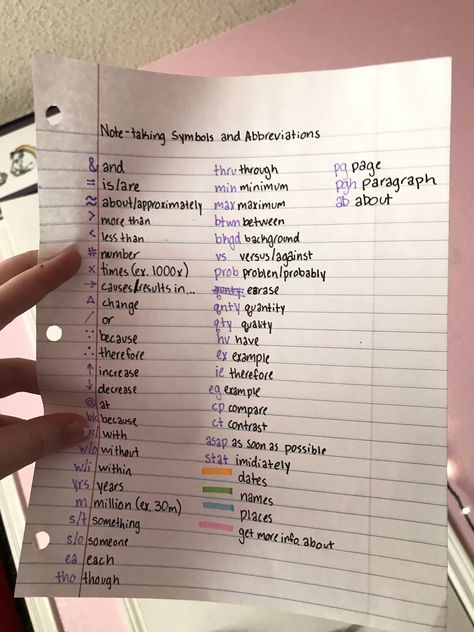 Note-taking Symbols and Abbreviations
& and
= is/are
≈ about/approximately
> more than
< less than
# number
x times (ex. 1000x)
→ causes/results in...
∆ change
/ or
∵ because
∴ therefore
↑ increase
↓ decrease
@ at
b/c because
w/ with
w/o without
w/i within
yrs years
m million (ex. 30m)
s/t something
s/o someone
ea each
tho though
thru through
min minimum
max maximum
btwn between
bhgd background
vs versus/against
prob problen/probably
erase
qnty quantity
qty quality
hv have
ex example
ie therefore
eg example
cp compare
ct contrast
asap as soon as possible
stat imidiately
dates
names
places
get more info. about
pg page
pgh paragraph
ab about